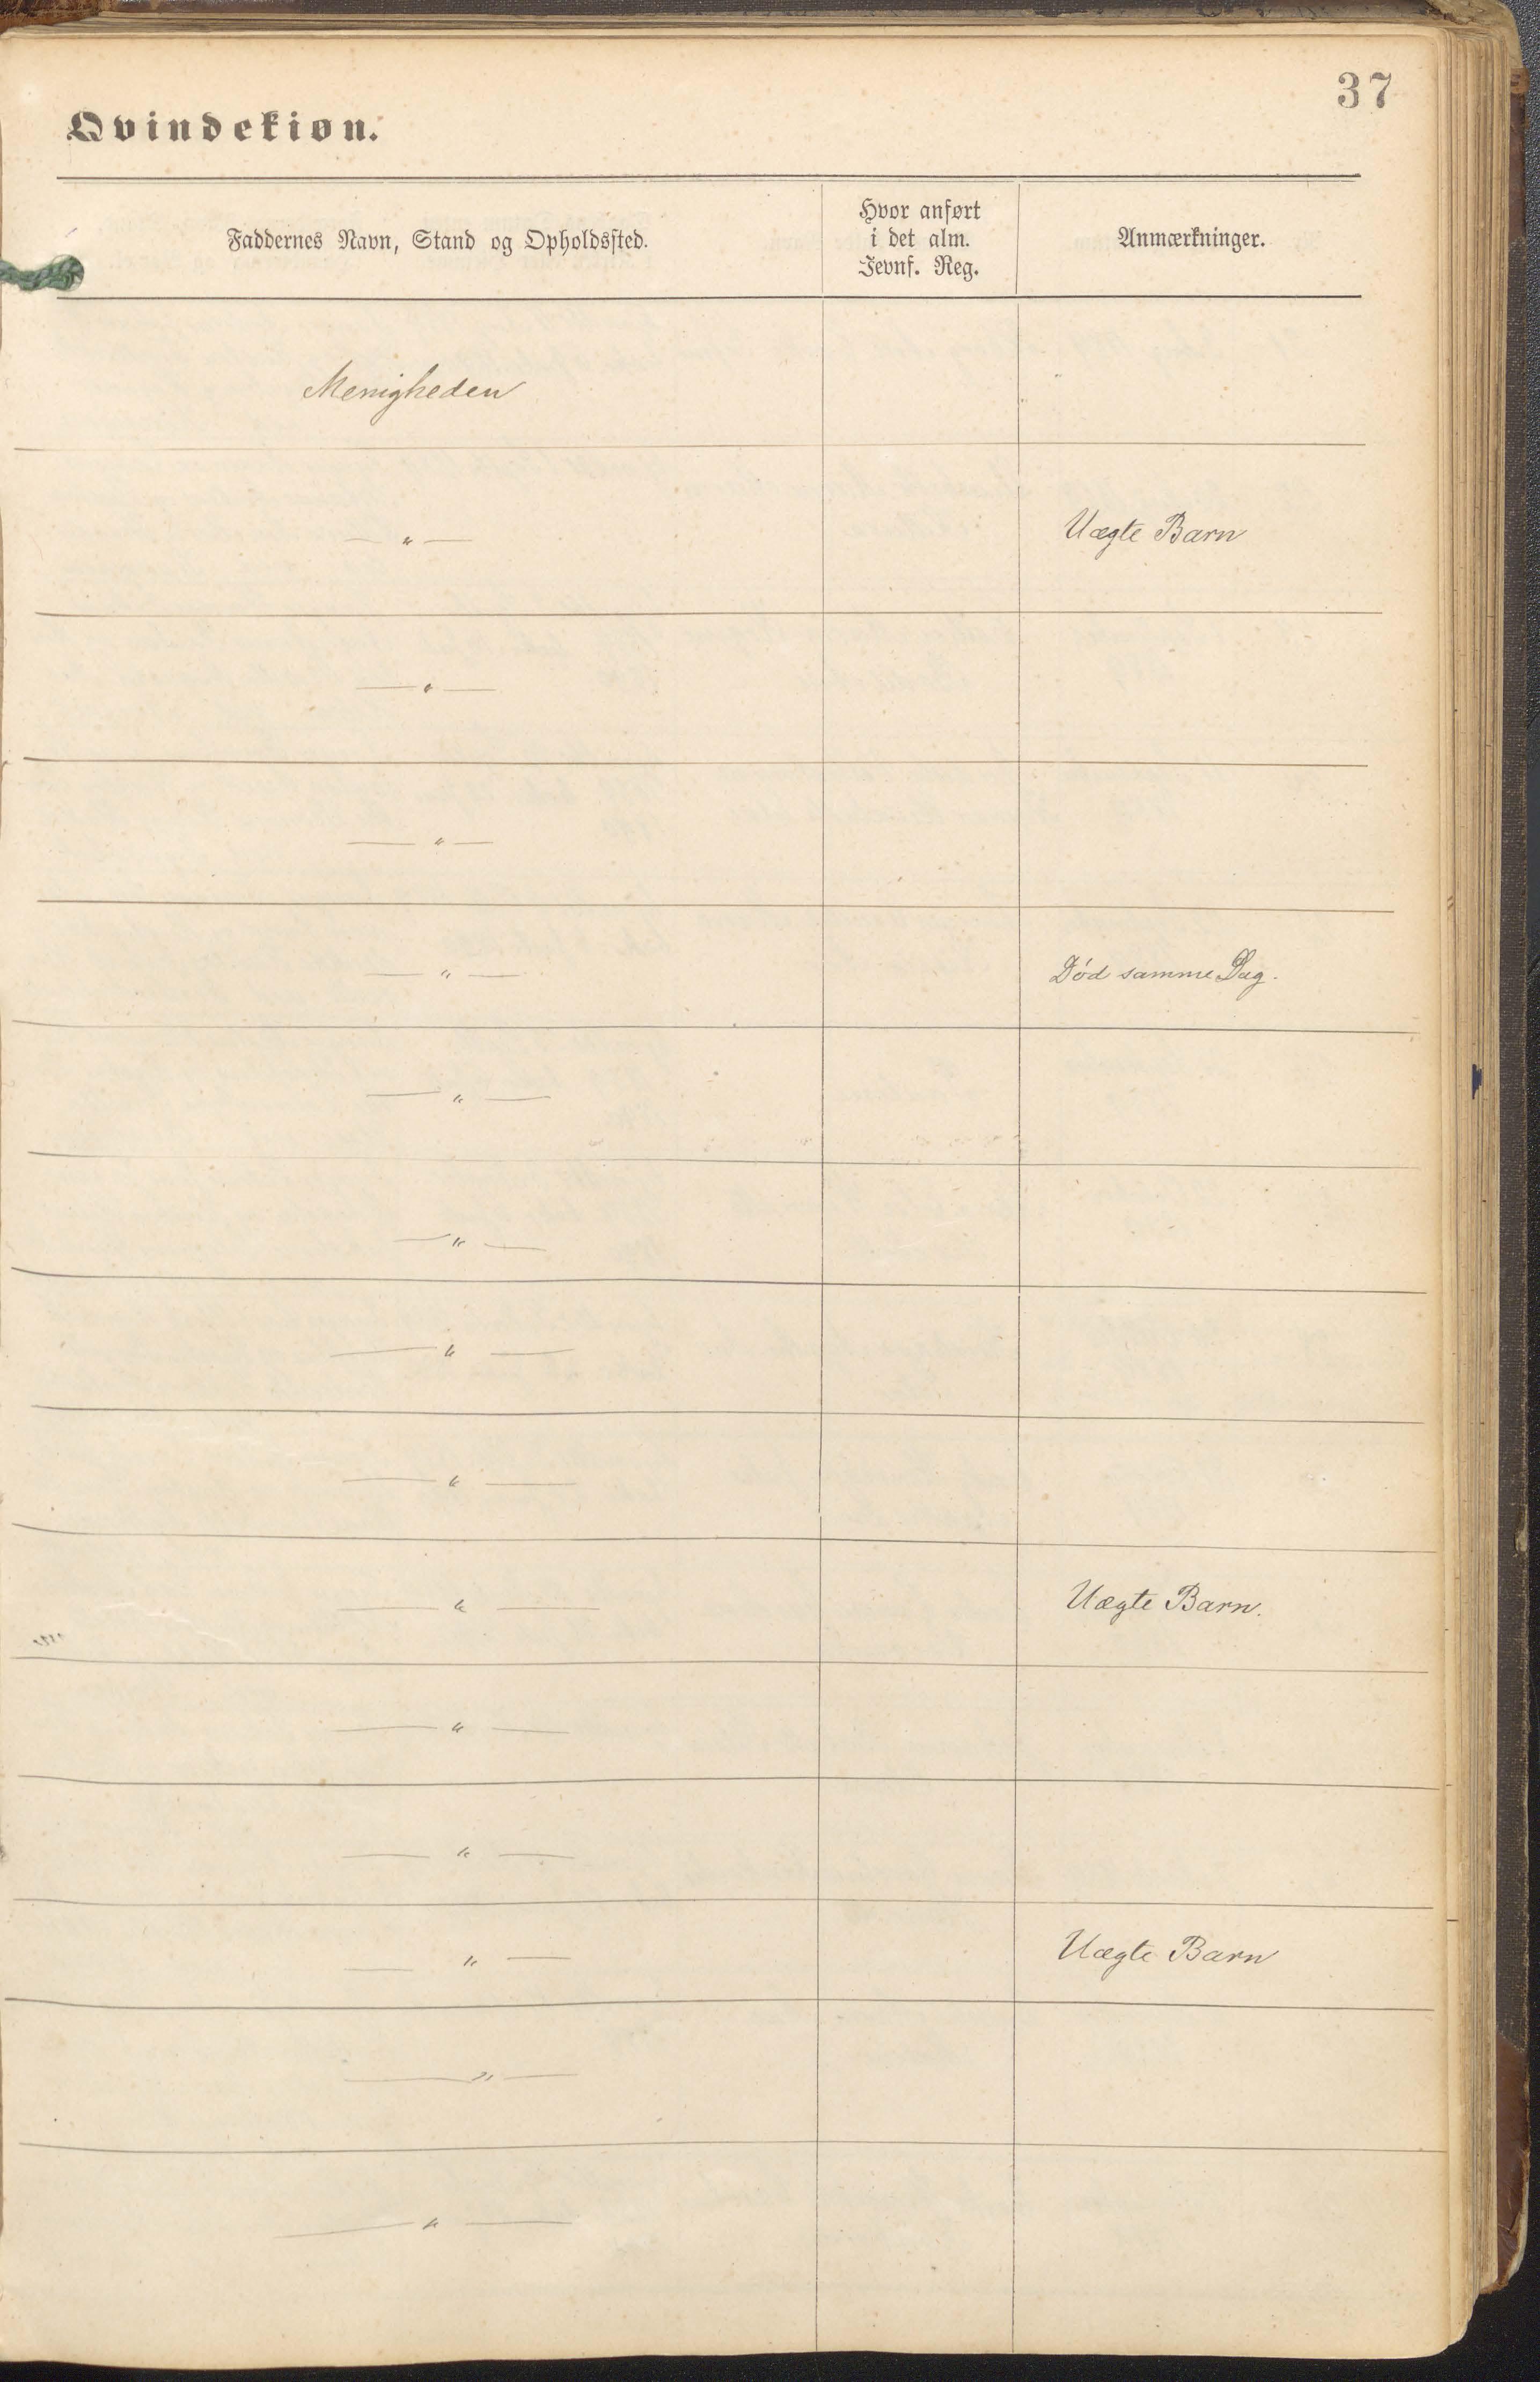 37
Qvindekiøn.
Faddernes Navn, Stand og Opholdssted.
Hvor anført
i det alm.
Jevnf. Reg.
Anmærkninger.
Menigheden
— " —
Uægte Barn
— " —
— " —
— " —
Død samme Dag.
— " —
— " —
— " —
— " —
— " —
Uægte Barn.
— " —
— " —
— " —
Uægte Barn
— " —
— " —